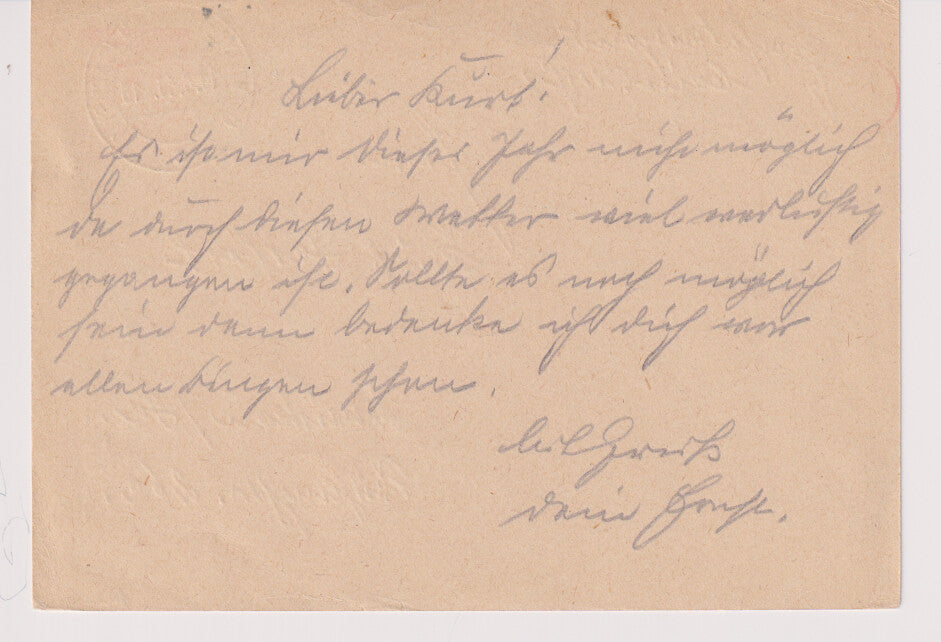 Lieber Kurt!
Es ist mir dieses Jahr nicht möglich
da durch diesen Wetter viel verlustig
gegangen ist. Sollte es noch möglich
sein dann bedenke ich dich vor
allen Dingen schon.
Gruß
dein Ernst.